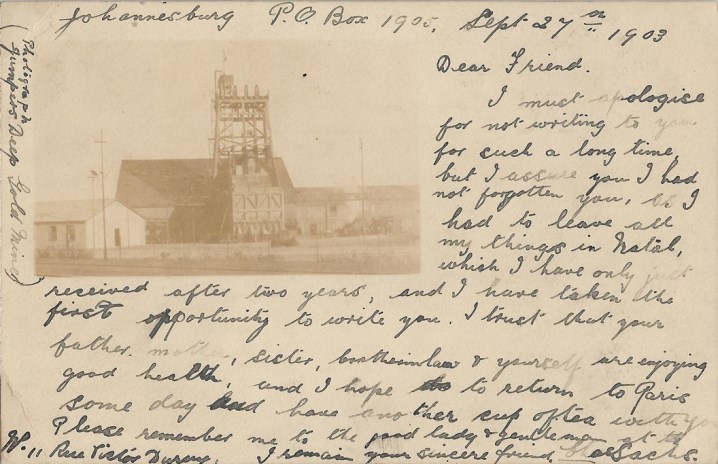 Johannesburg P.O. Box 1905, Sept 27th 1903
Dear Friend.
I must apologise
for not writing to you
for such a long time,
but I assure you I had
not forgotten you, I
had to leave all
my things in Natal,
which I have only just
received after two years, and I have taken the
first opportunity to write you. I trust that your
father, mother, sister, brotherinlaw & yourself are enjoying
good health, and I hope to to return to Paris
some day and have another cup of tea with you
Please remember me to the good lady & gentlemen at the
11 Rue Victor Duruy. I remain your sincere friend Sachs.
(Photograph
Jumpers Deep Gold Mine)